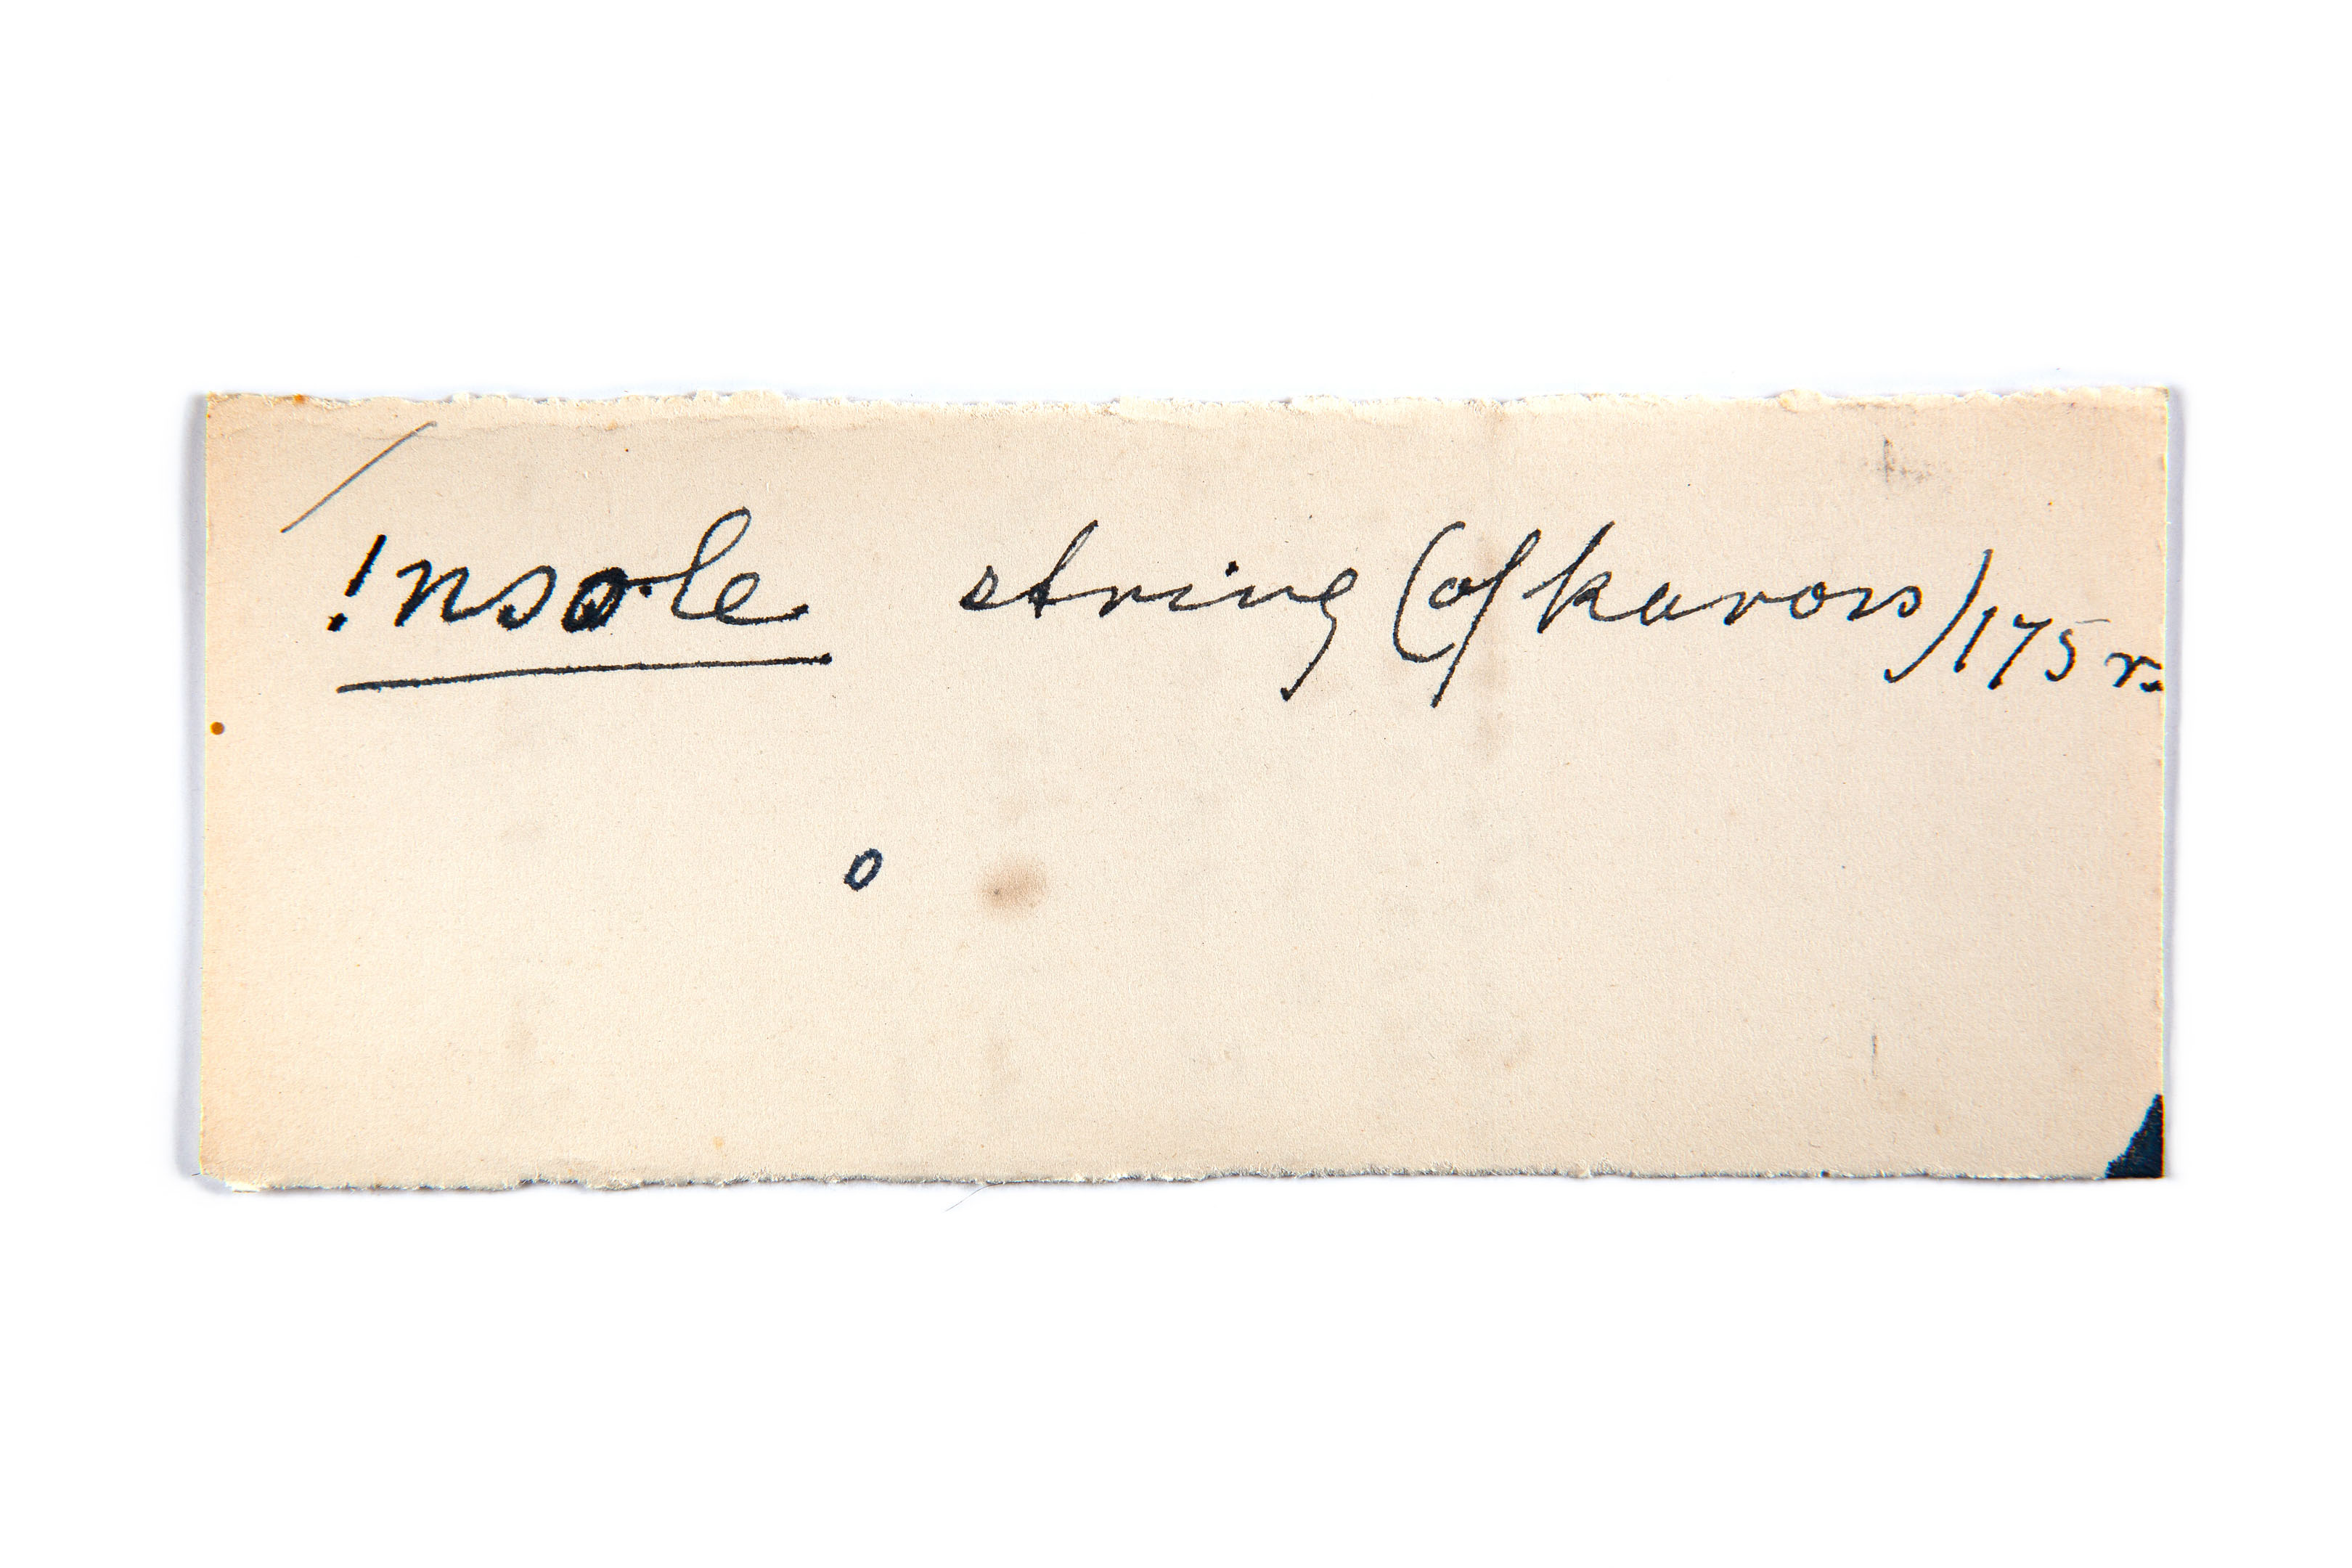 !nsole string (of kaross) 175 r.
o